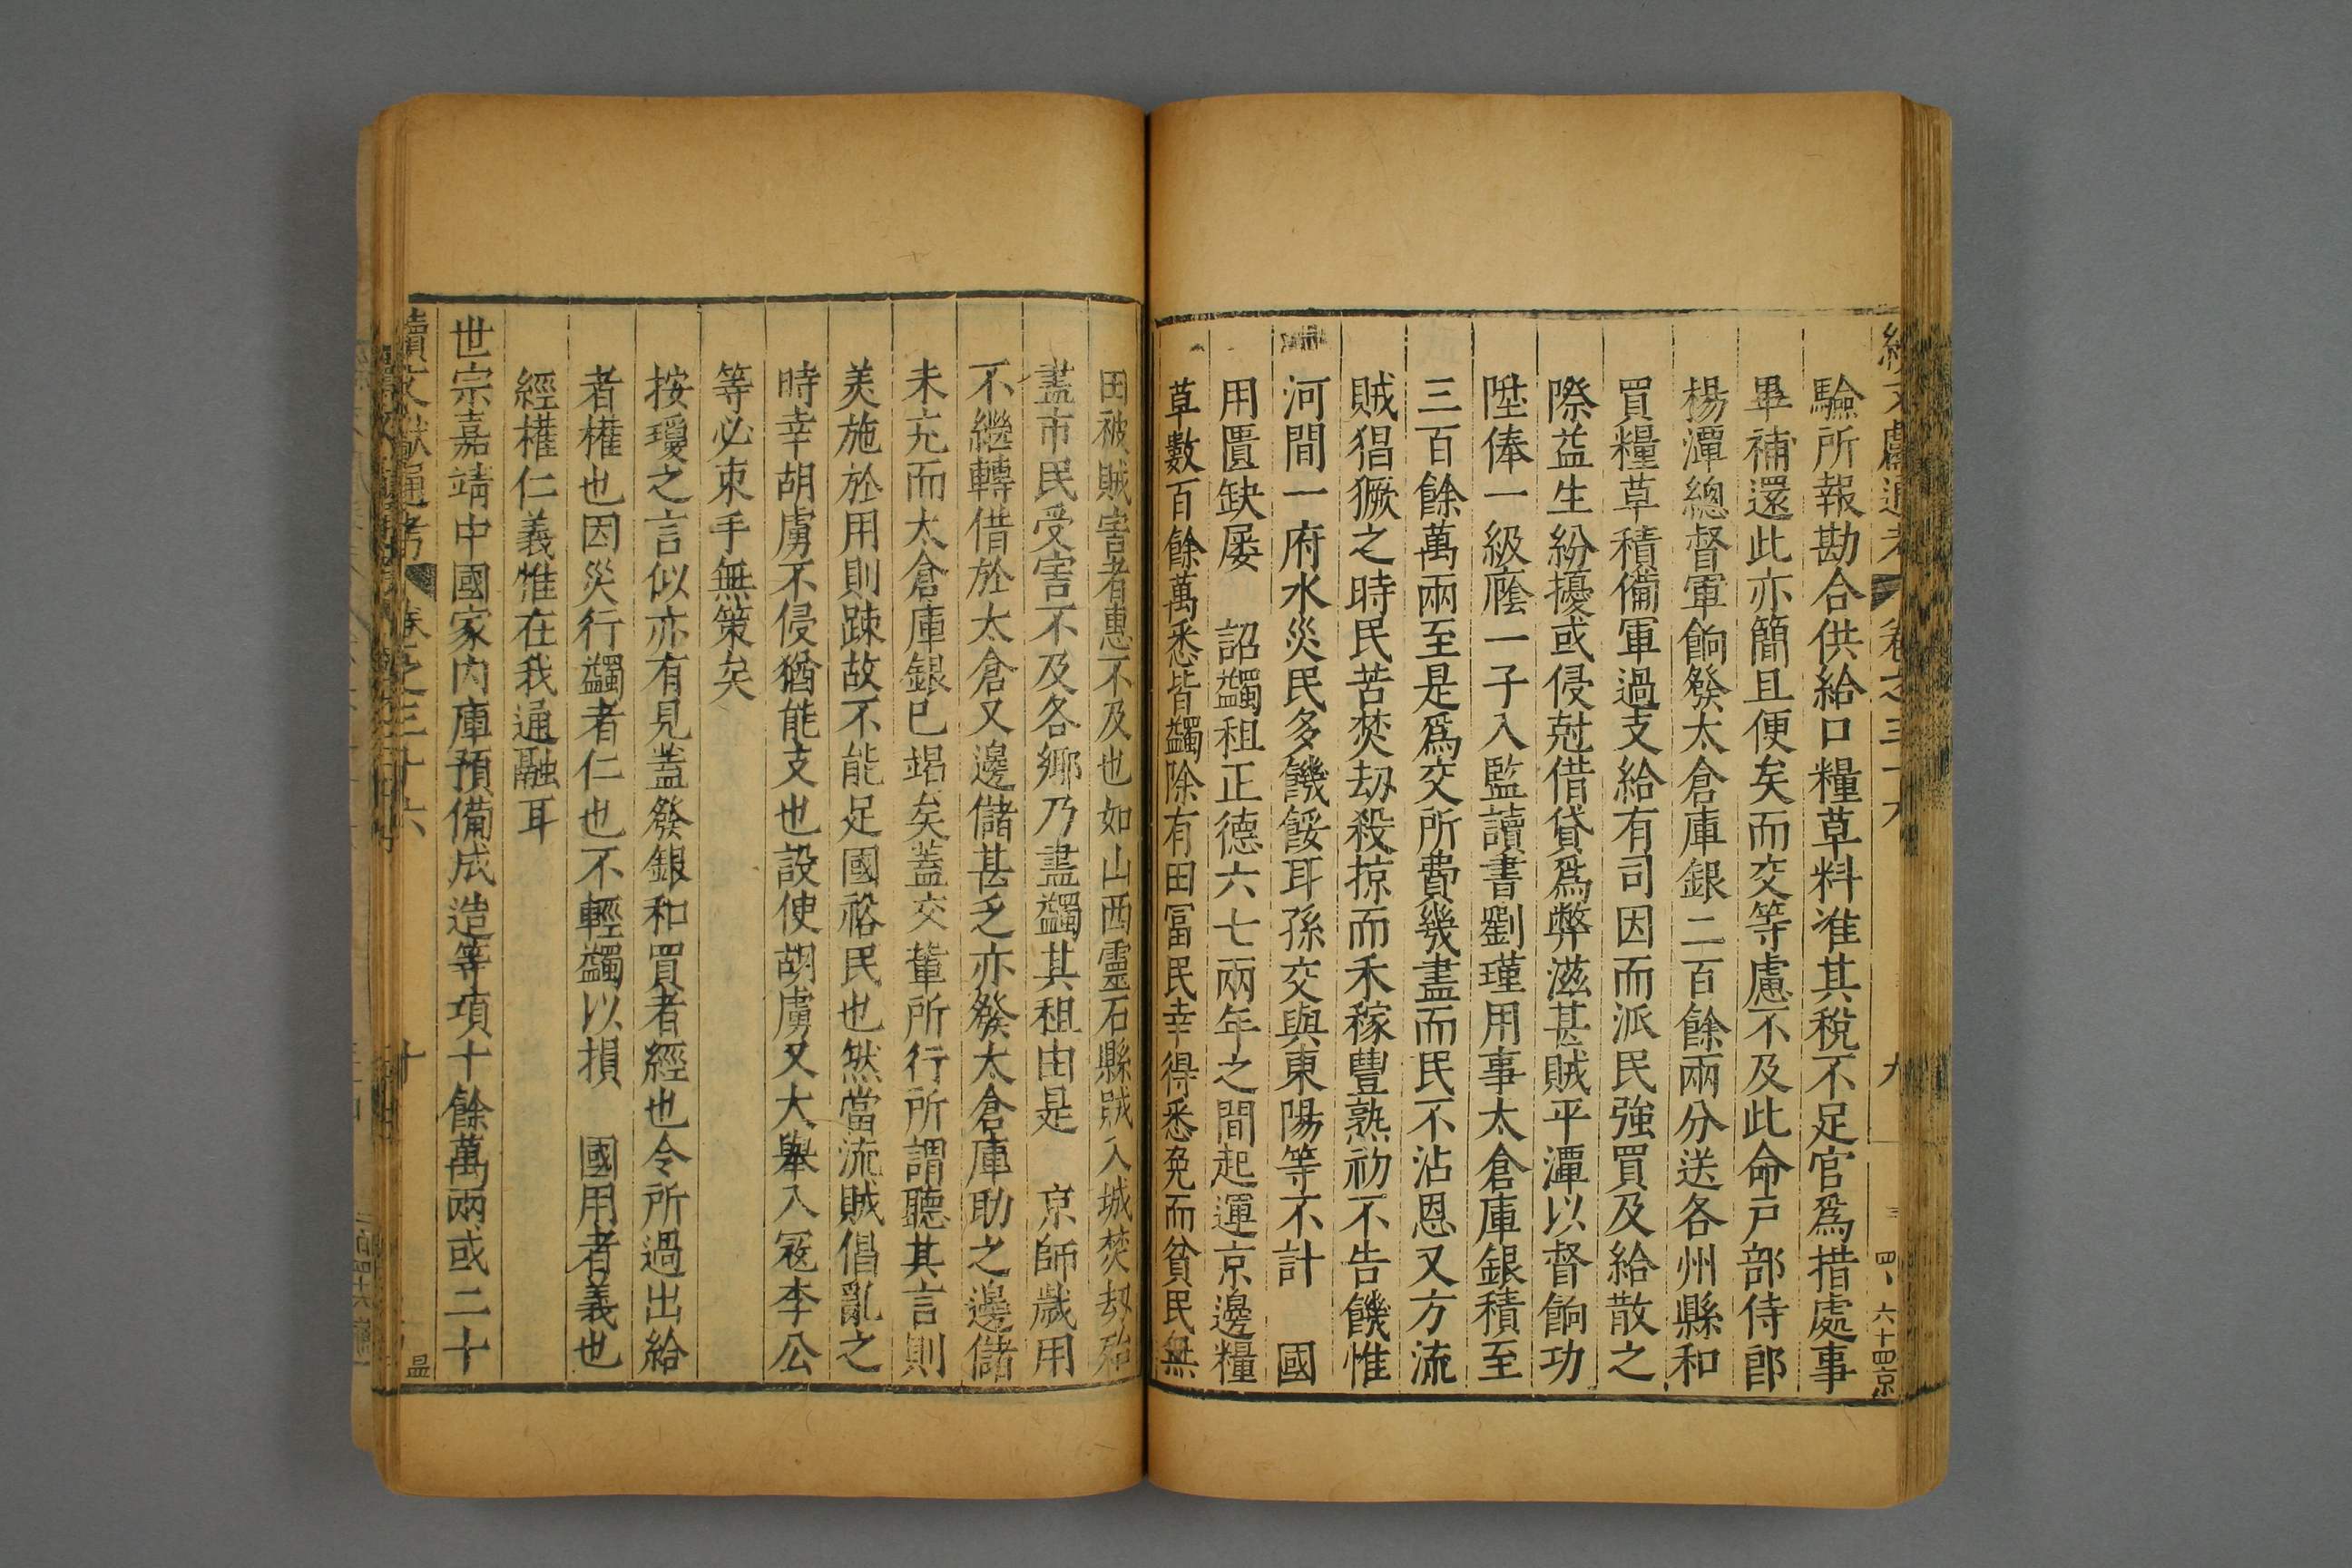 驗所報勘合供給口糧草料准其稅不足官爲措處事
畢補還此亦簡且便矣而交等慮不及此命戸部侍郎
楊潭總督軍餉發太倉庫銀二百餘兩分送各州縣和
買糧草積備軍過支給有司因而派民強買及給散之
際益生紛擾或侵尅借貸爲弊滋甚賊平潭以督餉功
陞俸一級廕一子入監讀書劉瑾用事太倉庫銀積至
三百餘萬兩至是爲交所費幾盡而民不沾恩又方流
賊猖獗之時民苦焚刼殺掠而禾稼豐熟初不告饑惟
河間一府水災民多饑餒耳孫交與東陽等不計　國
用匱缺屡　詔蠲租正德六七兩年之間起運京邊糧
草數百餘萬悉皆蠲除有田冨民幸得悉免而貧民無
田被賊害者惠不及也如山西靈石縣賊入城焚刼殆
盡市民受害不及各鄉乃盡蠲其租由是　京師歲用
不繼轉借於太倉又邊儲甚乏亦發太倉庫助之邊儲
未充而太倉庫銀已竭矣蓋交輩所行所謂聽其言則
美施於用則踈故不能足國裕民也然當流賊倡亂之
時幸胡虜不侵猶能支也設使胡虜又大舉入寇李公
等必束手無策矣
按瓊之言似亦有見蓋發銀和買者經也令所過出給
者權也因災行蠲者仁也不輕蠲以損　國用者義也
經權仁義惟在我通融耳
世宗嘉靖中國家內庫預備成造等項十餘萬兩或二十
續文獻通考　卷之三十六　十